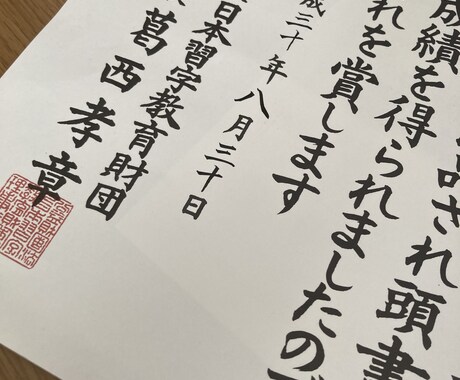 書
記され頭書
成績を得られましたので
れを賞します
成三十年八月三十日
日本習字教育財団
葛西孝章